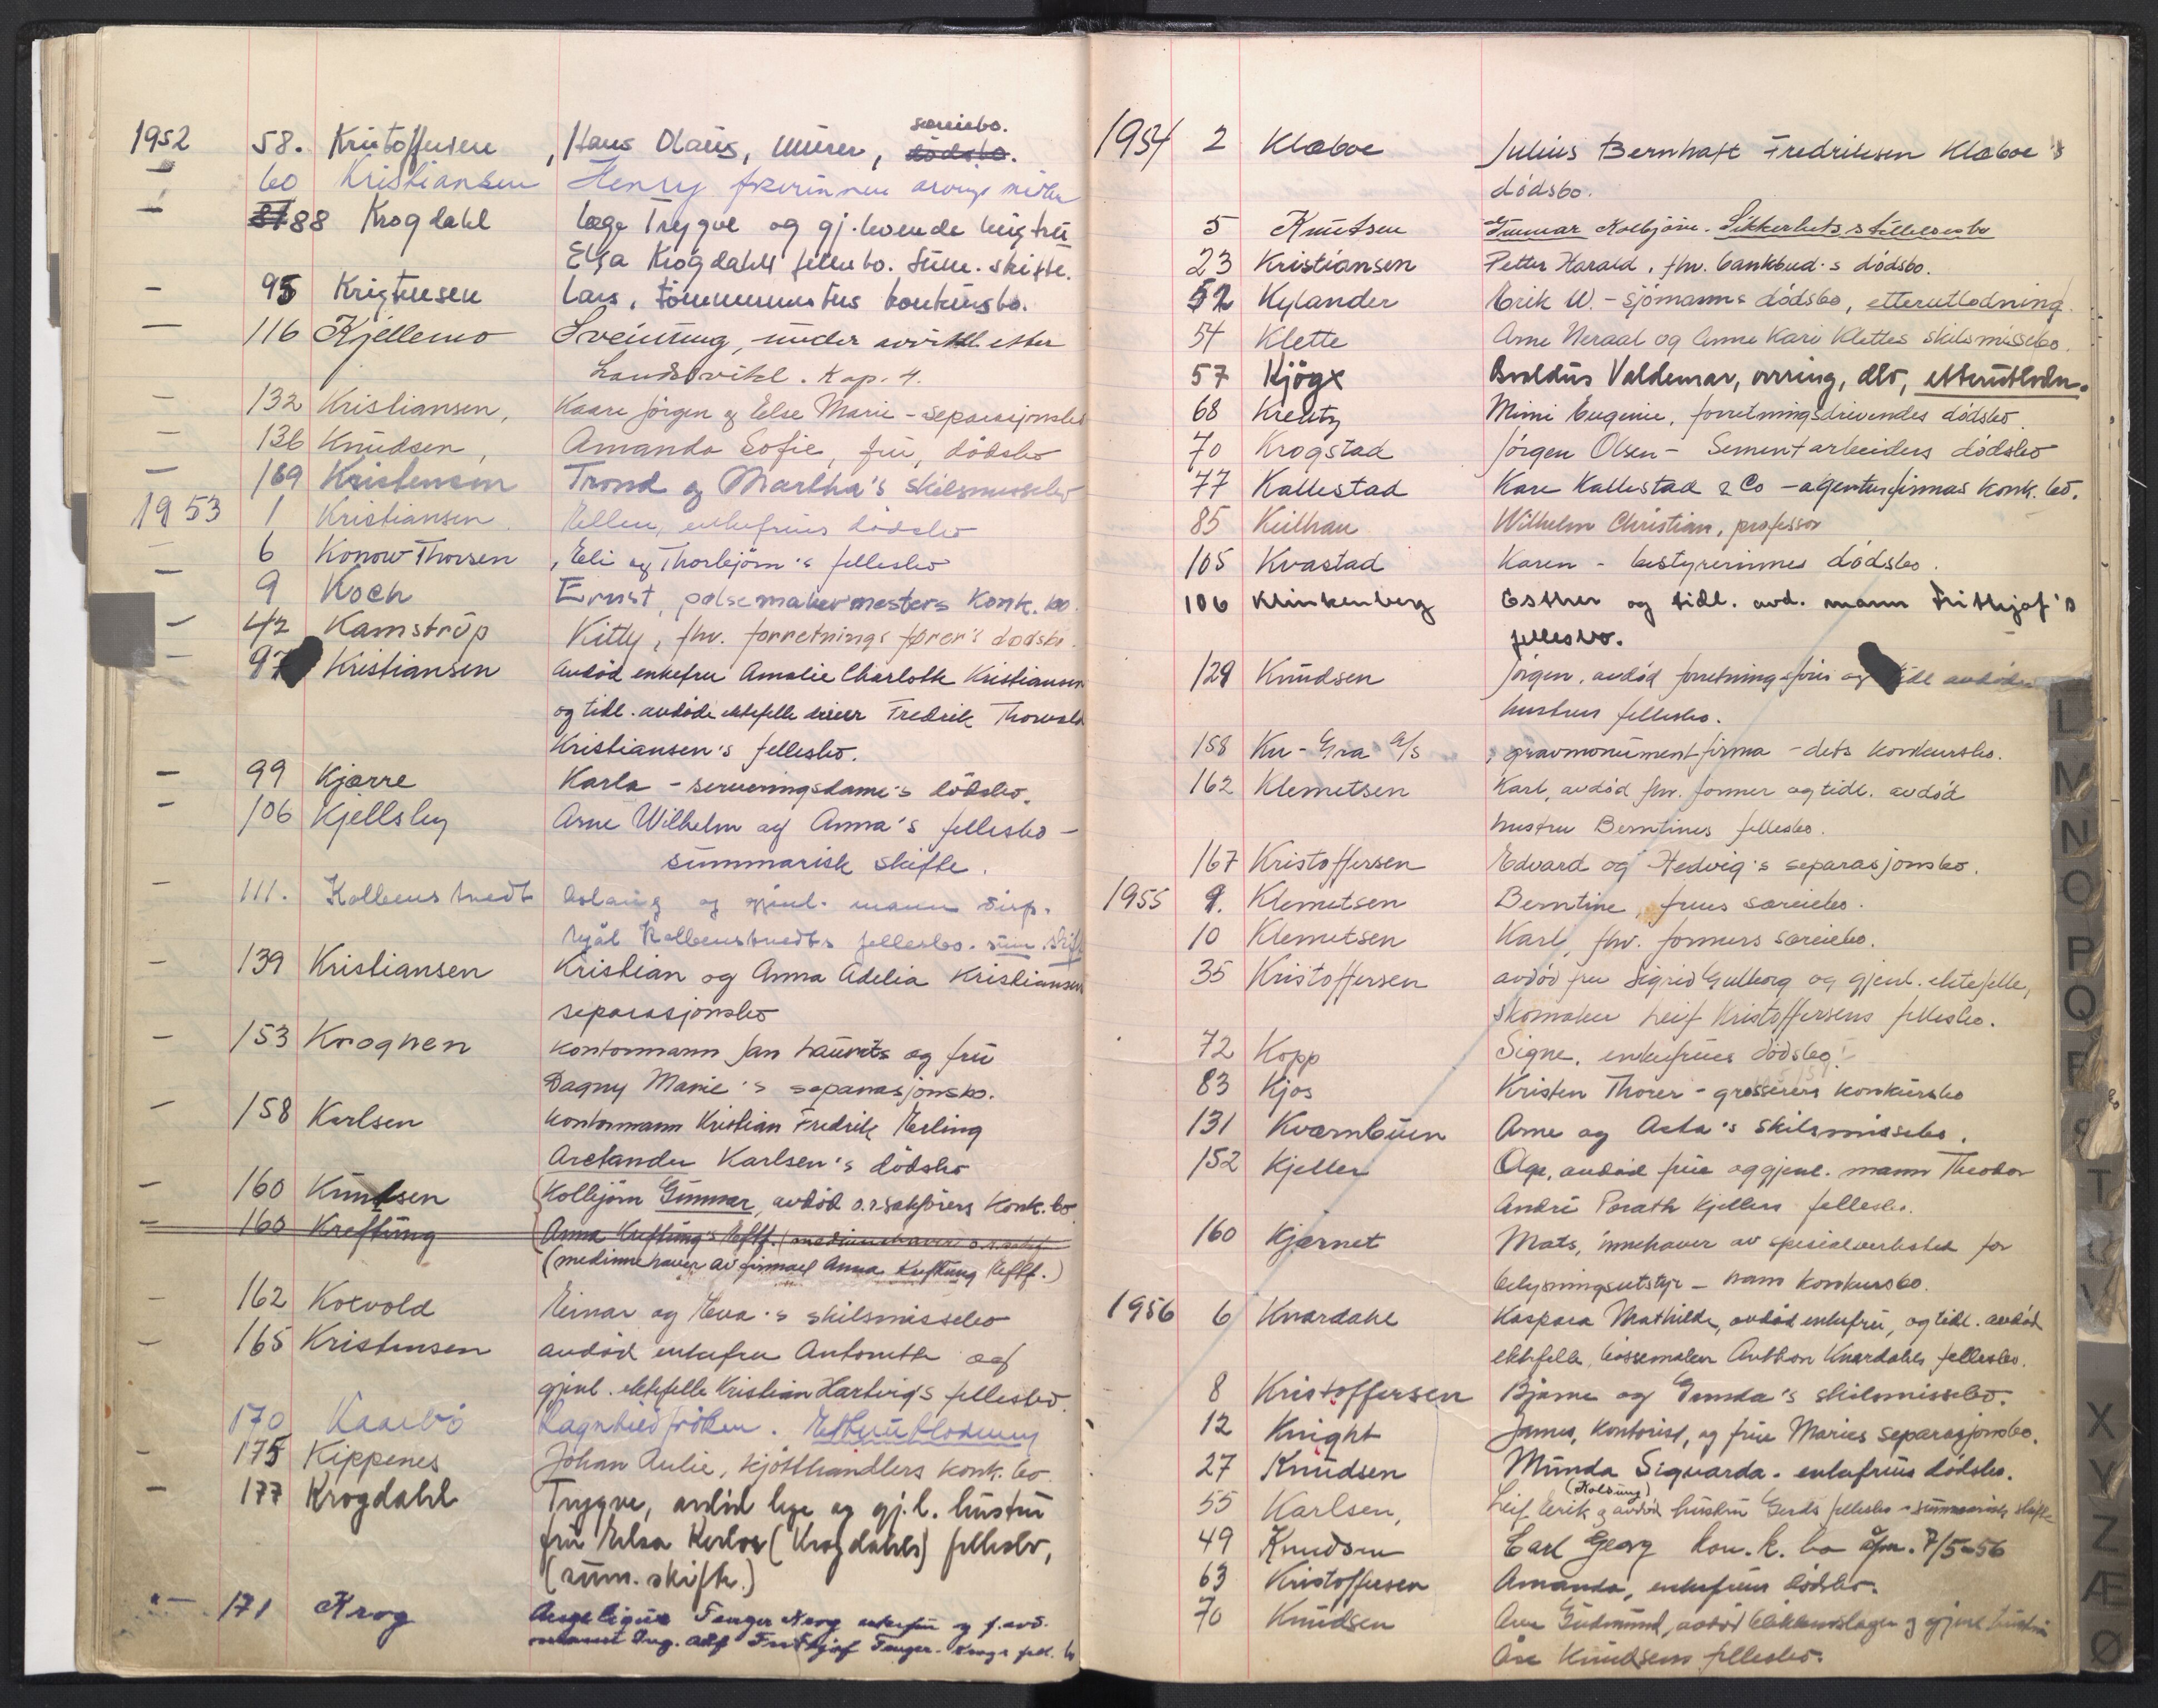 særeiebo.
1952 58. Kristoffersen, Hans Olaus, murer, dödsbo.
— 60 Kristiansen Henry
— 81 88 Krogdahl læge Trygve og gj.levende hustru
Elsa Krogdahls fellesbo. Summ. skifte.
— 95 Kristensen Lars, tömmermesters konkursbo.
— 116 Kjellemo Sveinung, under avvikl. etter
Landsvikl. Kap. 4.
— 132 Kristiansen, Kaare Jörgen og Else Marie - separasjonsbo
— 136 Knudsen, Amanda Sofie, fru, dödsbo
— 169 Kristensen Trond og Martha's skilsmissebo
1953 1 Kristiansen. Ellen, enkefrues dödsbo
— 6 Konow Thorsen, Eli og Thorbjörn's fellesbo
— 9 Koch Ernst, pølsemakermesters Konk. bo.
— 42 Kamstrüp Kitty, fhv. forretningsfører's dødsbo.
— 97 Kristiansen Avdöd enkefru Amalie Charlotte Kristiansen
og tidl. avdöde ektefelle Fredrik Thorvald
Kristiansen's fellesbo.
— 99 Kjærre Karla - serveringsdame's dödsbo.
— 106 Kjellsby Arne Wilhelm og Anna's fellesbo -
summarisk skifte.
— 111. Kolbenstvedt Aslaug og gjenl. mann disp.
Kolbenstvedts fellesbo. sum. skift
— 139 Kristiansen Kristian og Anna Adelia Kristiansen
separasjonsbo
— 153 Krognen Kontormann Jan Laurits og fru
Dagny Marie's separasjonsbo.
— 158 Karlsen Kontormann Kristian Fredrik Erling
Aretander Karlsen's dödsbo
— 160 Knudsen Kolbjörn Gunnar, avdöd o.r.sakförers Konk. bo
— 160 Krefting Anna Krefting's Eftf. (medinnehaver
(medinnehaver av firmaet Anna Krefting Eftf.)
— 162 Koxvold Einar og Eva's skilsmissebo
— 165 Kristensen avdöd enkefru Antonette og
gjenl. ektefelle Kristian Hartvig's fellesbo.
170 Kaarbö Ragnhild fröken. Etterutlodning
— 175 Kippenes Johan Aulie, kjötthandlers konk. bo.
— 177 Krogdahl Trygve, avdöd lege og gj.l. hustru
fru Elsa (Krogdahls) fellesbo,
(sum. skifte.)
— 171 Krog Angelique Fenger Krog enkefru og f. avd.
Ing. Fritkjof Fenger-Krogs fell. bo
1954 2 Klæboe Julius Bernhaft Fredriksen Klæboe's
dödsbo.
5 Knutsen Gunnar Kolbjörn. Sikkerhetsstillelsesbo
23 Kristiansen Petter Harald, fhv. bankbud's dödsbo.
52 Kylander Erik W. - sjömanns dödsbo, etterutlodning.
54 Klette Arne Neraal og Anne Kari Klettes skilsmissebo.
57 Kjögx Valdemar, etterutlodn.
68 Kreutz Mimi Eugenie, forretningsdrivendes dödsbo.
70 Krogstad Jörgen Olsen - Sementarbeiders dödsbo
77 Kallestad Kare Kallestad & Co - agenturfirmas konk. bo.
85 Keilhau Wilhelm Christian, professor
105 Kvastad Karen - bestyrerinnes dödsbo.
106 Klinkenberg Esther og tidl. avd. mann Frithjof's
fellesbo.
129 Knudsen Jörgen, avdöd forretningsförer og tidl avdöde
hustrus fellesbo.
158 Ku-Gra A/S, gravmonumentfirma - dets konkursbo.
162 Klemetsen Karl, avdöd fhv. former og tidl. avdöd
hustru Berntines fellesbo.
167 Kristoffersen Edvard og Hedvig's separasjonsbo.
1955 9. Klemetsen Berntine, frues særeiebo.
10 Klemetsen Karl, fhv. formers særeiebo.
35 Kristoffersen avdöd fru Sigrid Gulborg og gjenl. ektefelle,
skomaker Leif Kristoffersens fellesbo.
72 Kopp Signe, enkefrues dödsbo.
83 Kjos Kristen Thorer - grosserers konkursbo
131 Kværnbuen Arne og Asta's skilsmissebo.
152 Kjeller Olga, avdöd frue og gjenl. mann Theodor
Andre Parath Kjellers fellesbo.
160 Kjærnet Mats, innehaver av spesialverksted for
belysningsutstyr - hans konkursbo.
1956 6 Knardahl Kaspara Mathilde, avdöd enkefru, og tidl. avdöd
ektefelle, bössemaker Anthon Knardahls fellesbo.
8 Kristoffersen Bjarne og Gunda's skilsmissebo.
12 Knight James, kontorist, og frue Maries separasjonsbo.
27 Knudsen Munda Sigvarda - enkefrues dödsbo.
55 Karlsen, Leif Erik og avdöd hustru Gerds fellesbo - summarisk skifte
49 Knudsen Earl Georg kon.k. bo åpn. 7/5-56
63 Kristoffersen Amanda, enkefrues dödsbo.
70 Knudsen Gudmund, avdöd og gjenl hustru
Åse Knudsens fellesbo.
L
M
N
O
P
Q
R
S
T
U
V
X
Y
Z
Æ
Ø